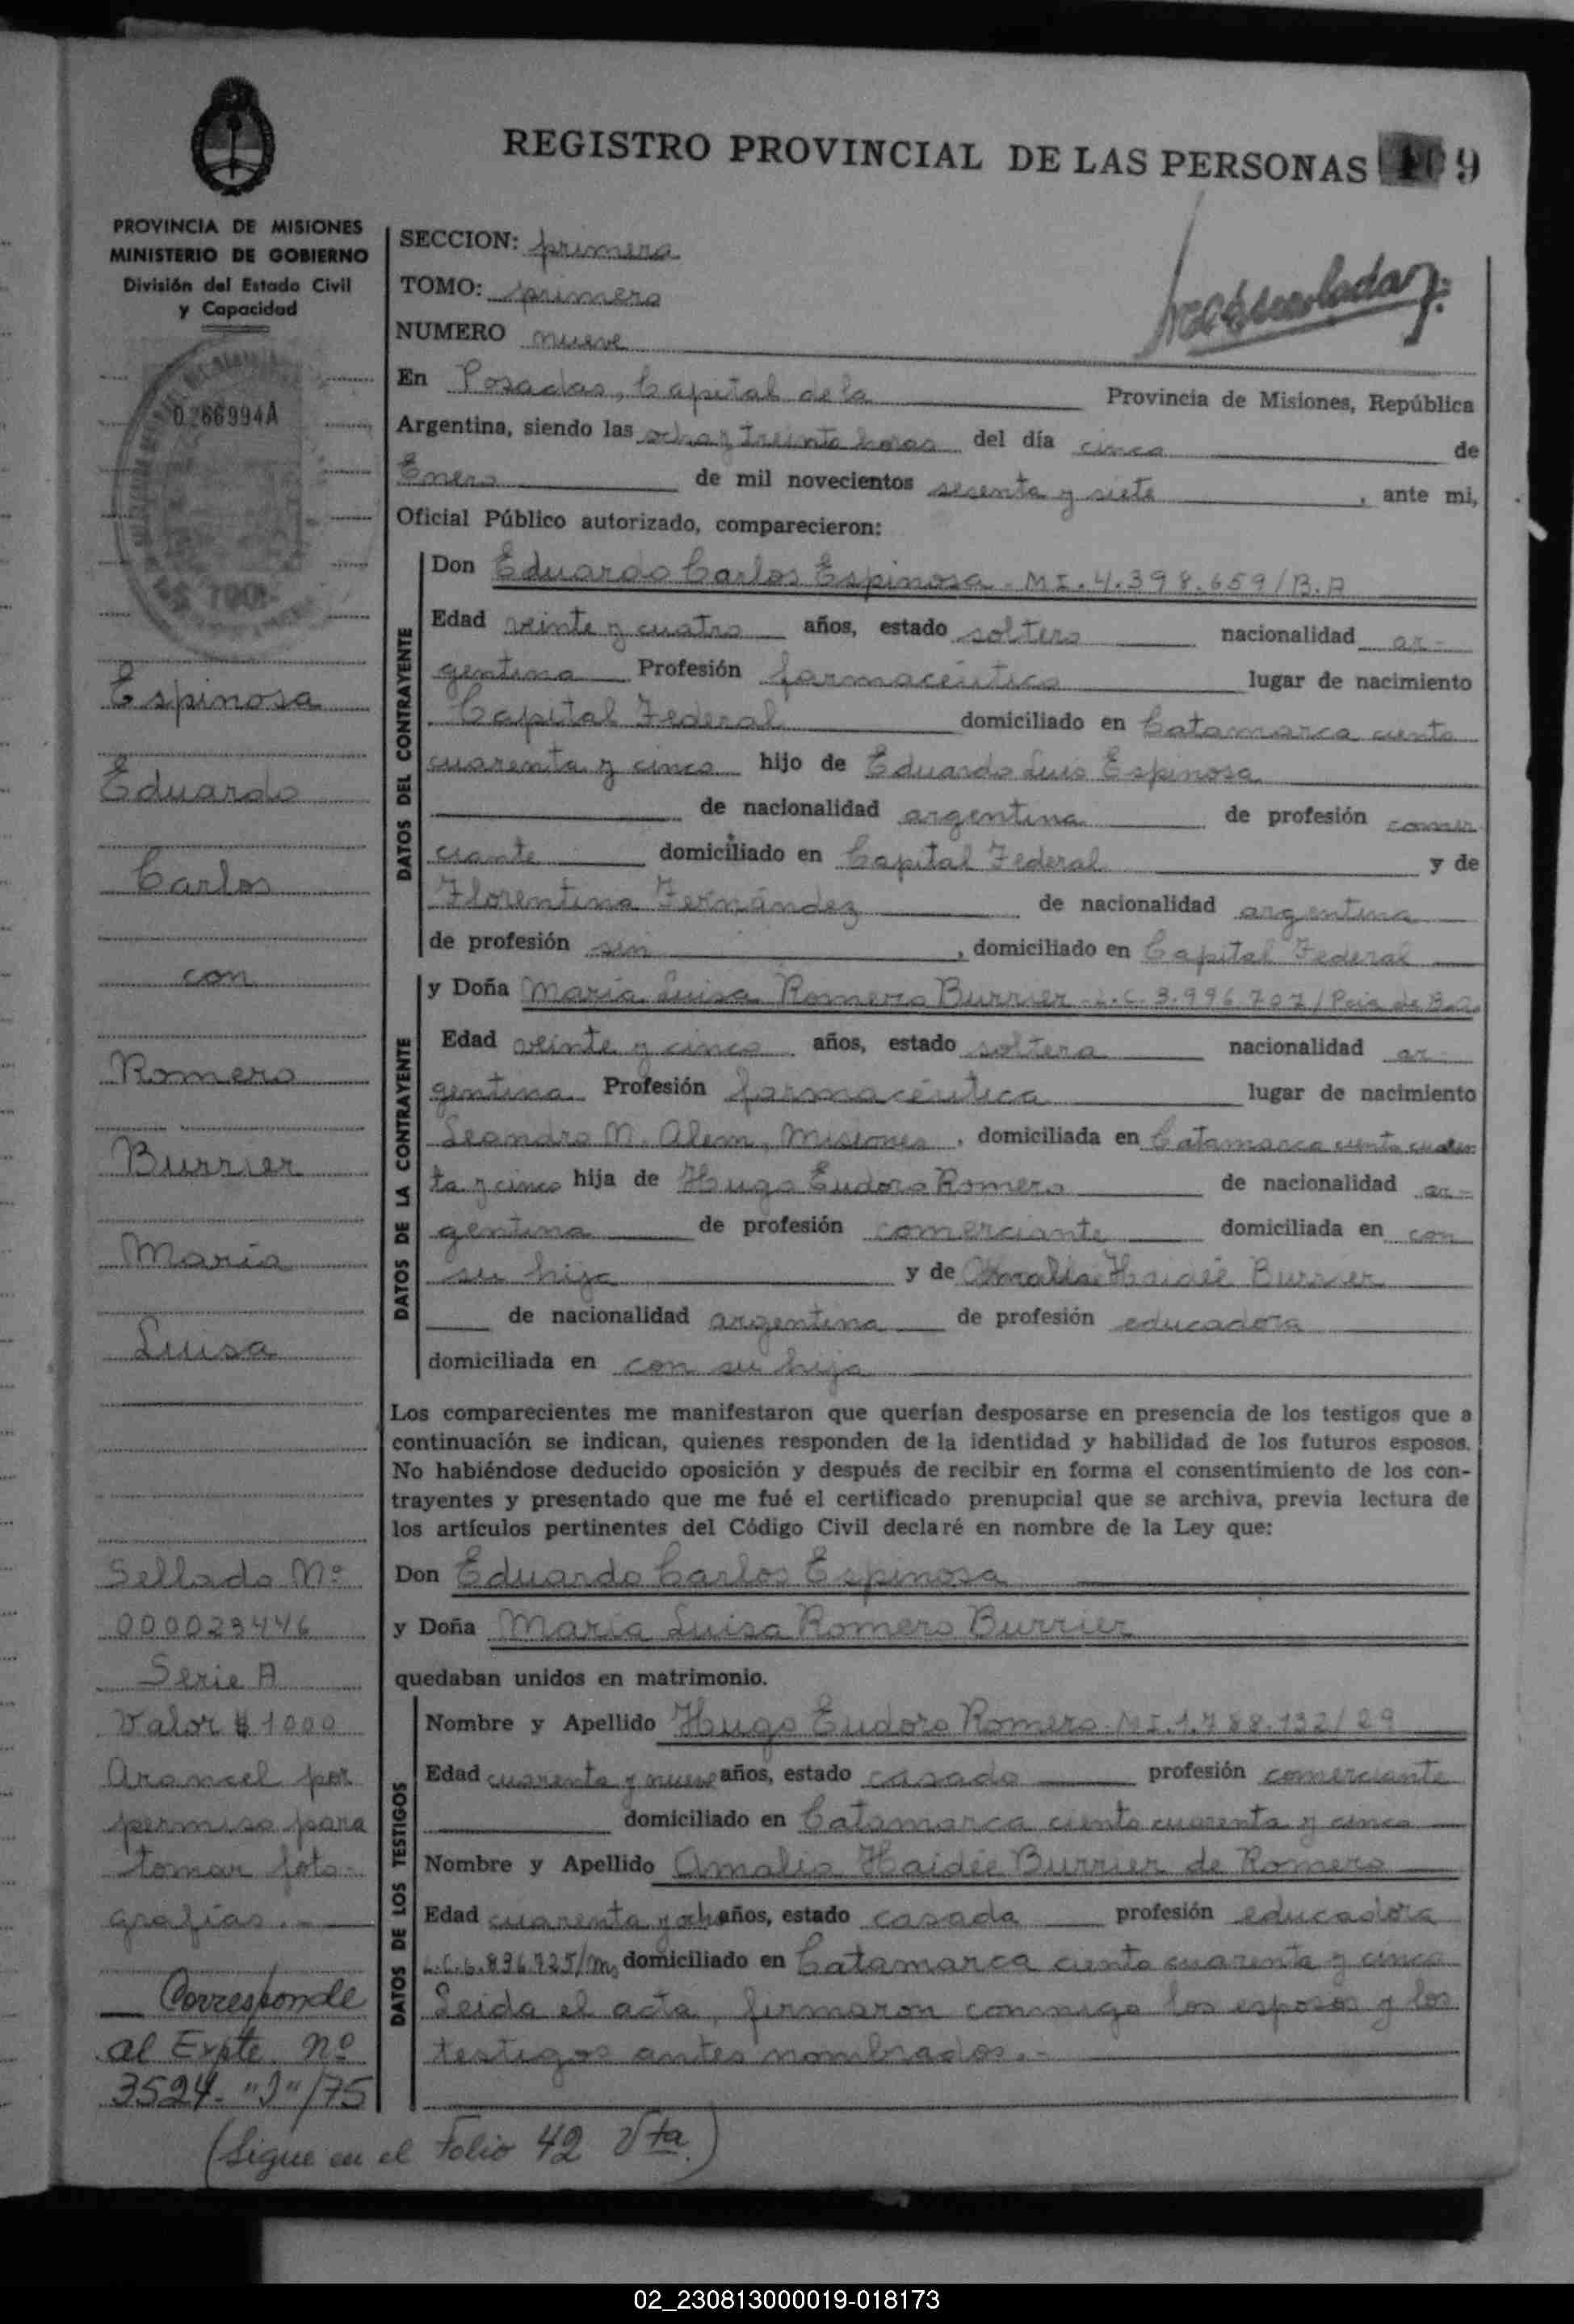 REGISTRO PROVINCIAL DE LAS PERSONAS 9
PROVINCIA DE MISIONES
MINISTERIO DE GOBIERNO
División del Estado Civil
y Capacidad
0266994A
Espinosa
Eduardo
Carlos
con
Romero
Burrier
María
Luisa
Sellado Nº
000023446
Serie A
Valor $ 1000
Arancel por
permiso para
tomar foto-
grafías.-
Corresponde
al Expte. nº
3524-"J"/75
SECCION: primera
TOMO: primero
NUMERO nueve
En Posadas, Capital de la Provincia de Misiones, República
Argentina, siendo las ocho y treinta horas del día cinco de
Enero de mil novecientos secenta y siete, ante mi,
Oficial Público autorizado, comparecieron:
DATOS DEL CONTRAYENTE
Don Eduardo Carlos Espinosa - MI. 4.398.659/B.A
Edad veinte y cuatro años, estado soltero nacionalidad ar-
gentina Profesión farmacéutico lugar de nacimiento
Capital Federal domiciliado en Catamarca ciento
cuarenta y cinco hijo de Eduardo Luis Espinosa
de nacionalidad argentina de profesión comer
ciante domiciliado en Capital Federal y de
Florentina Fernández de nacionalidad argentina
de profesión sin, domiciliado en Capital Federal
DATOS DE LA CONTRAYENTE
y Doña María Luisa Romero Burrier - L.C. 3.996.707/Pcia de
Edad veinte y cinco años, estado soltera nacionalidad ar-
gentina Profesión farmacéutica lugar de nacimiento
Leandro N. Alem, Misiones, domiciliada en Catamarca ciento cuaren
ta y cinco hija de Hugo Eudoro Romero de nacionalidad ar-
gentina de profesión comerciante domiciliada en con
su hija y de Amalia Haidée Burrier
de nacionalidad argentina de profesión educadora
domiciliada en con su hija
Los comparecientes me manifestaron que querían desposarse en presencia de los testigos que a
continuación se indican, quienes responden de la identidad y habilidad de los futuros esposos.
No habiéndose deducido oposición y después de recibir en forma el consentimiento de los con-
trayentes y presentado que me fué el certificado prenupcial que se archiva, previa lectura de
los artículos pertinentes del Código Civil declaré en nombre de la Ley que:
Don Eduardo Carlos Espinosa
y Doña María Luisa Romero Burrier
quedaban unidos en matrimonio.
DATOS DE LOS TESTIGOS
Nombre y Apellido Hugo Eudoro Romero. MI. 1.788.132/29
Edad cuarenta y nueve años, estado casado profesión comerciante
domiciliado en Catamarca ciento cuarenta y cinco
Nombre y Apellido Amalia Haidée Burrier de Romero
Edad cuarenta y ocho años, estado casada profesión educadora
L.C. 6.836.925/M, domiciliado en Catamarca ciento cuarenta y cinco
Leida el acta, firmaron conmigo los esposos y los
testigos antes nombrados.-
(Sigue en el Folio 42 Vta.)
02_230813000019-018173